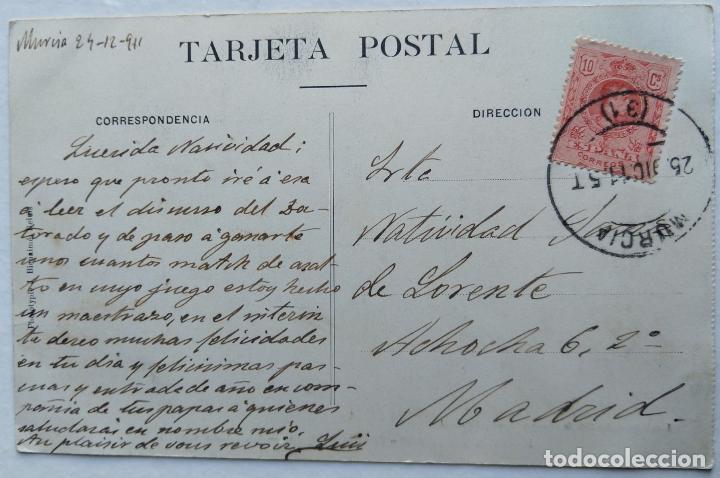 Murcia 24-12-911
TARJETA POSTAL
CORRESPONDENCIA
DIRECCION
Querida Natividad:
espero que pronto iré a esa
á leer el discurso del Doc-
torado y de paso á ganarte
unos cuantos match de
en cuyo juego estoy hecho
un maestrazo, en el interin
te deseo muchas felicidades
en tu dia y felicisimas pas-
cuas y entrada de año en com-
pañia de tus papas á quienes
saludarás en nombre mio.
Au plaisir de vous revoir Luis
Srta
Natividad
de Lorente
Achocha 6, 2º
Madrid.
10 Cs
CORREOS
MURCIA
25 DIC 11 5T
(31)
todocoleccion.net